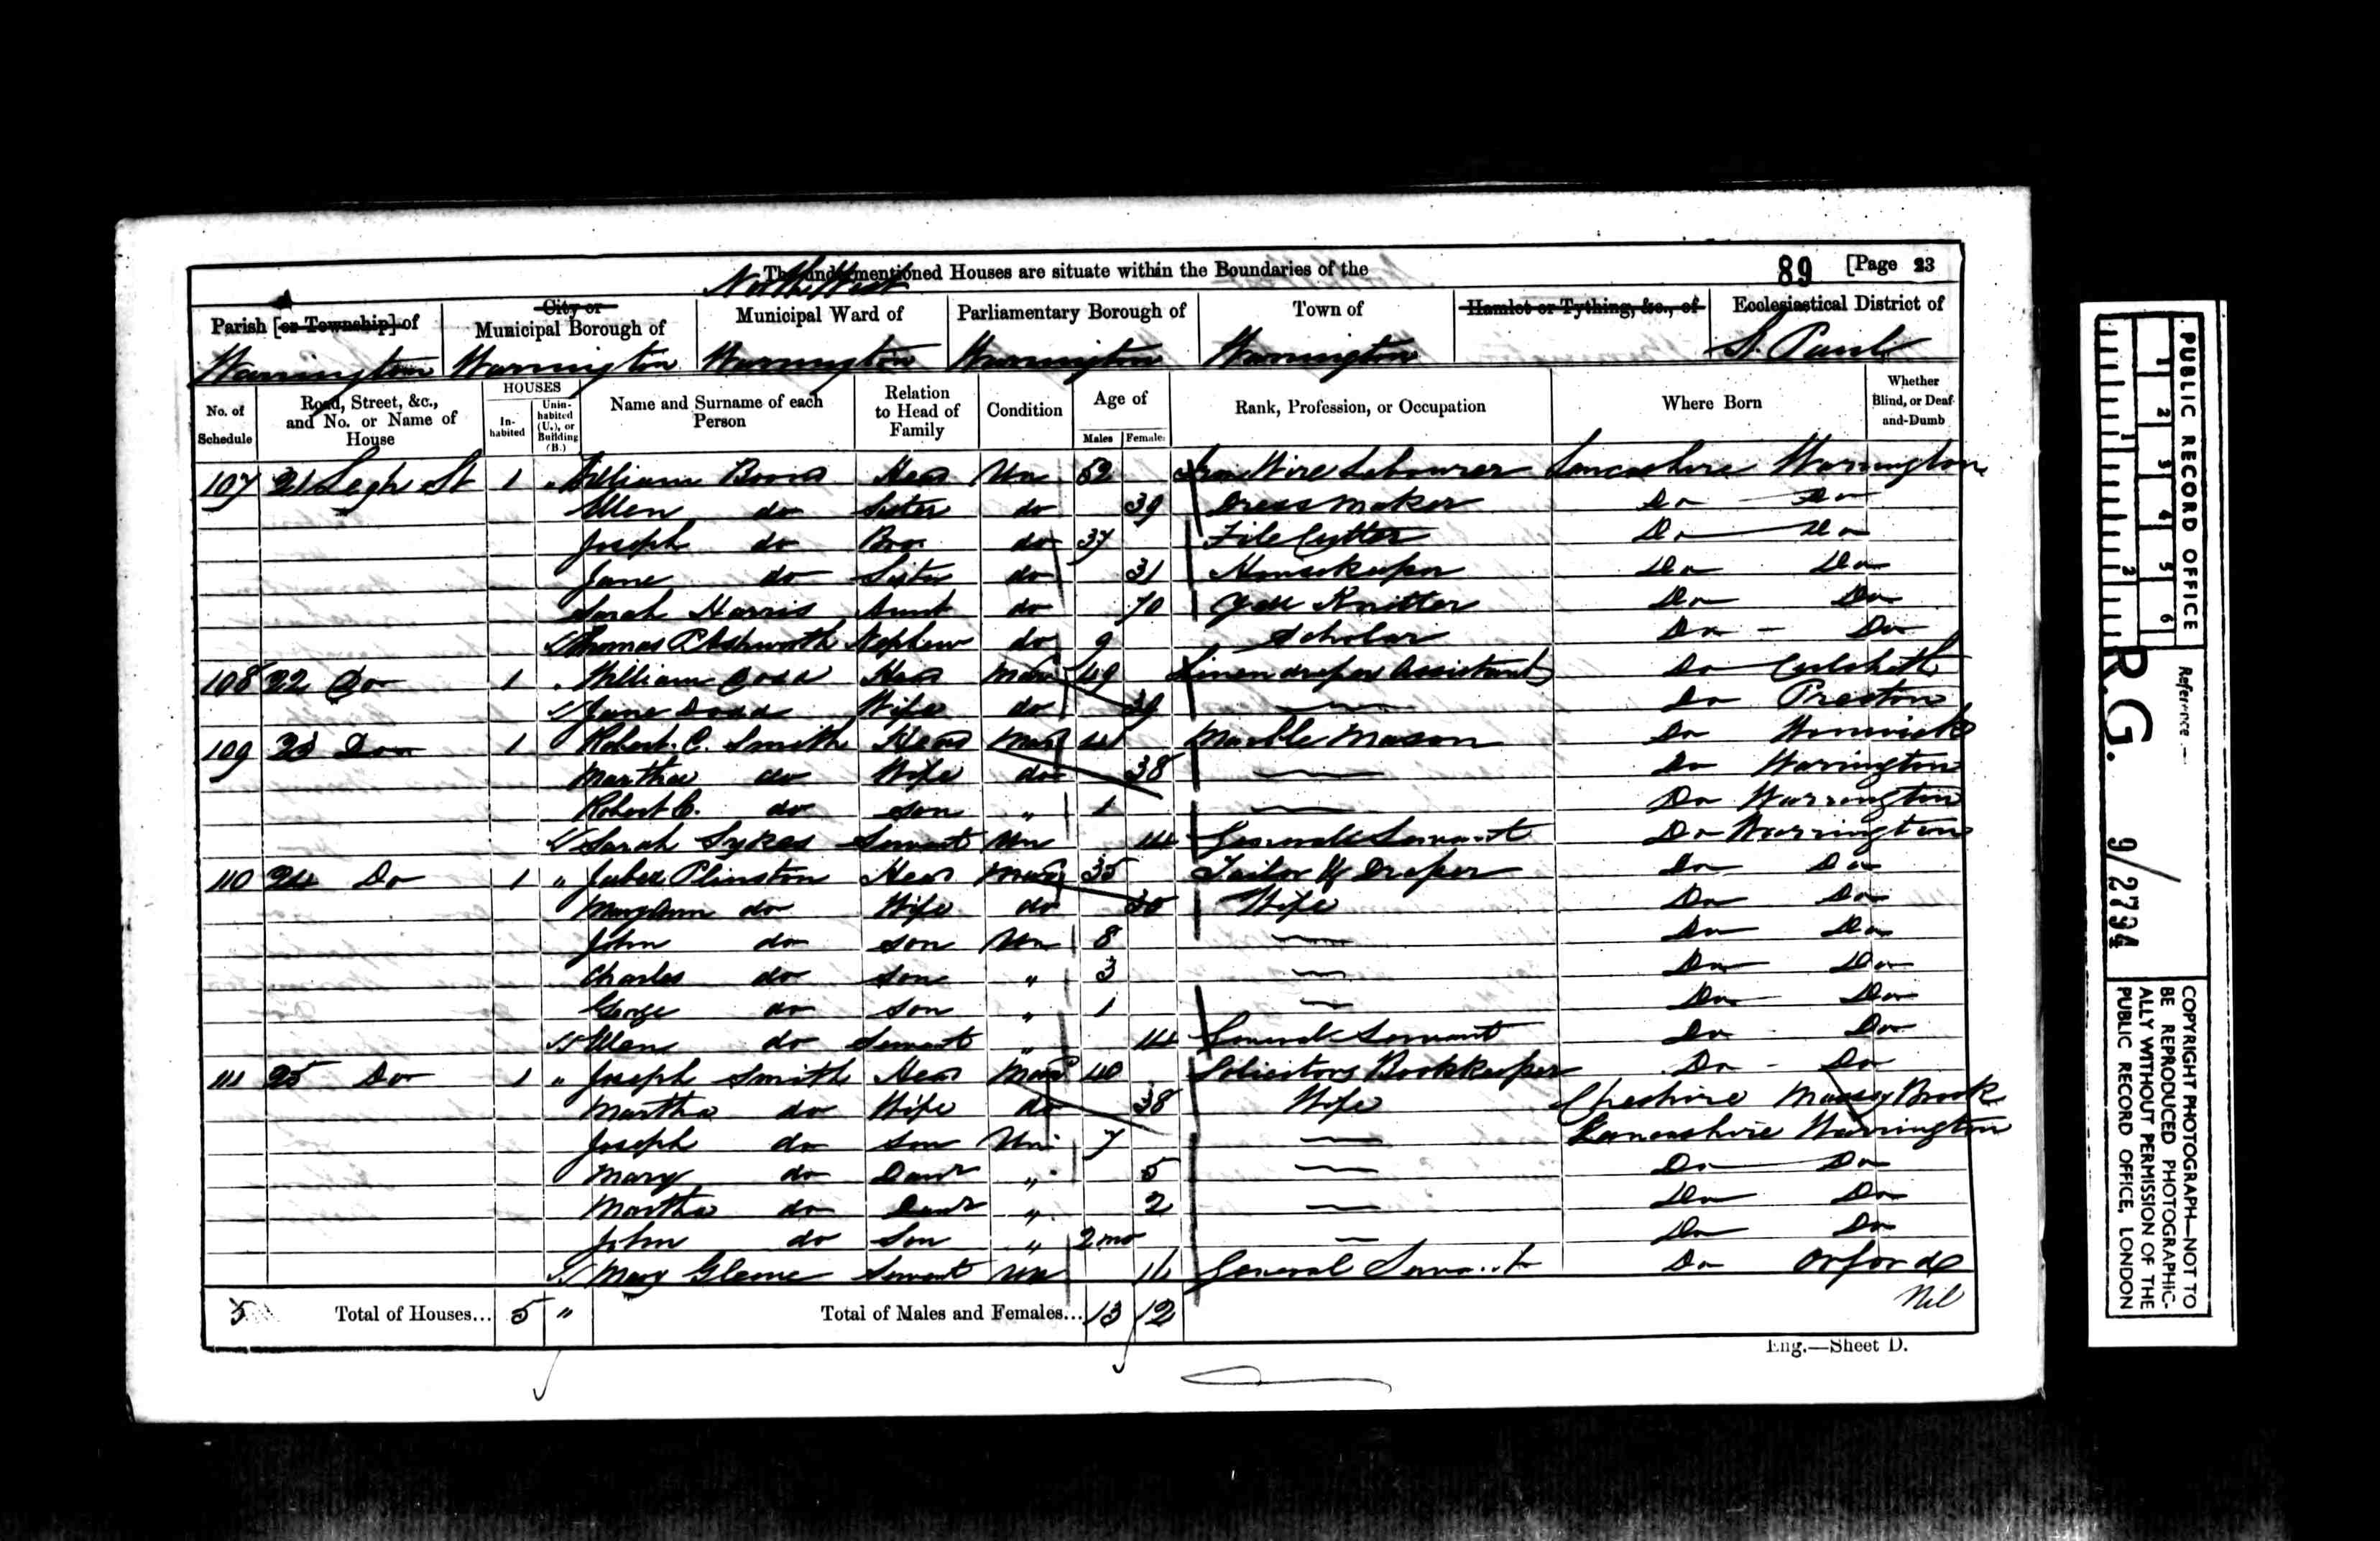 The undermentioned Houses are situate within the Boundaries of the
89 [Page 23
North West
Parish [or Township] of
City or Municipal Borough of
Municipal Ward of
Parliamentary Borough of
Town of
Hamlet or Tything, &c., of
Ecclesiastical District of
Warrington Warrington Warrington Warrington Warrington St. Paul
No. of Schedule
Road, Street, &c., and No. or Name of House
HOUSES
In-habited
Unin-habited (U.), or Building (B.)
Name and Surname of each Person
Relation to Head of Family
Condition
Age of
Males Females
Rank, Profession, or Occupation
Where Born
Whether Blind, or Deaf-and-Dumb
107 21 Legh St 1 " William Head Un 52 Iron Wire Labourer Lancashire Warrington
Ellen do Sister do 39 Dressmaker Do Do
Joseph do Bro do 37 File Cutter Do Do
Jane do Sister do 31 Housekeeper Do Do
Sarah Harris Aunt do 70 Knitter Do Do
Thomas P Ashworth Nephew do 9 Scholar Do Do
108 22 Do 1 " William Dodd Head Mar 49 Linen draper Assistant Do Culcheth
Jane Dodd Wife do 39 — Do Preston
109 23 Do 1 Robert C. Smith Head Mar 41 Marble Mason Do Winwick
Martha do Wife do 38 — Do Warrington
Robert C. do son " 1 — Do Warrington
Sarah Sykes Servant Un 14 General Servant Do Warrington
110 24 Do 1 " Jabez Plinston Head Mar 35 Tailor & Draper Do Do
Mary Ann do Wife do 30 Wife Do Do
John do son Un 8 — Do Do
Charles do son " 3 — Do Do
George do son " 1 — Do Do
Ellen do Servant " 14 General Servant Do Do
111 25 Do 1 " Joseph Smith Head Mar 40 Solicitors Bookkeeper Do Do
Martha do Wife do 38 Wife Cheshire Massey Brook
Joseph do Son Un 7 — Lancashire Warrington
Mary do Daur " 5 — Do Do
Martha do Daur " 2 — Do Do
John do Son " 2 mo — Do Do
Mary Servant Un 16 General Servant Do Orford
5 Total of Houses... 5 " Total of Males and Females... 13 12 Nil
Eng.—Sheet D.
PUBLIC RECORD OFFICE
1 2 3 4 5 6
1 2
Reference :—
R.G. 9/2794
COPYRIGHT PHOTOGRAPH—NOT TO
BE REPRODUCED PHOTOGRAPHIC-
ALLY WITHOUT PERMISSION OF THE
PUBLIC RECORD OFFICE, LONDON